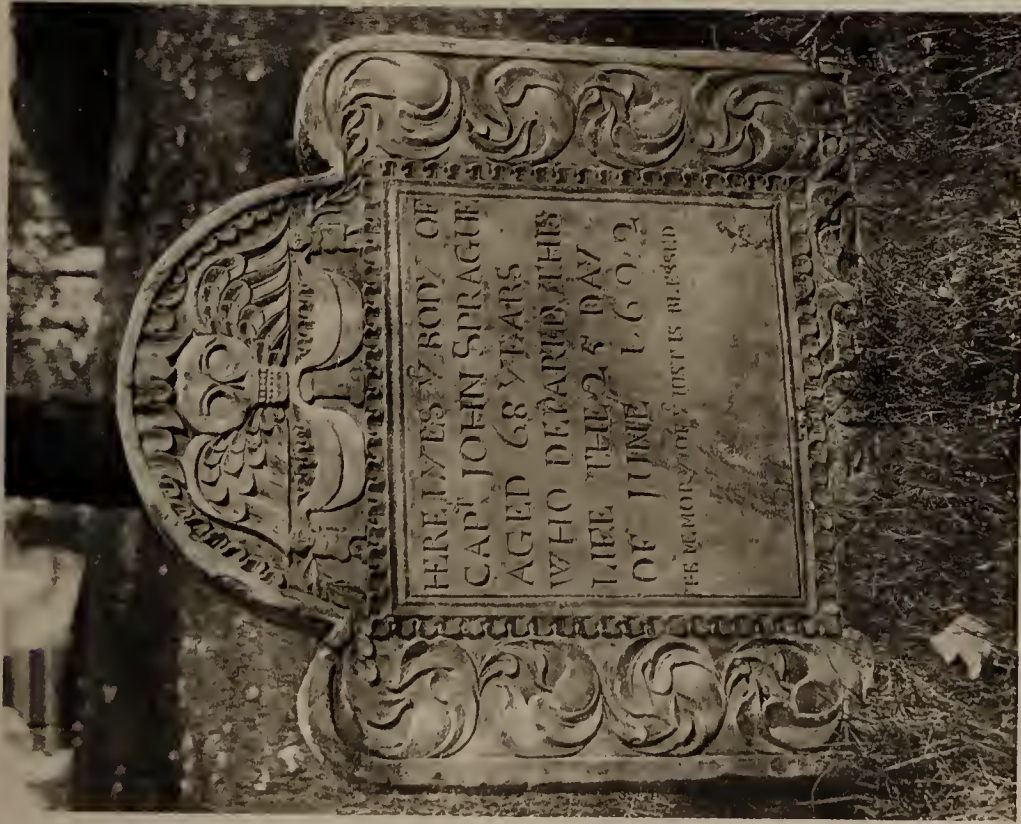 HERE LYES Yᴱ BODY OF
CAPᵀ JOHN SPRAGUE
AGED 68 YEARS
WHO DEPARTED THIS
LIFE THE 25 DAY
OF JUNE 1692
THE MEMORY OF Yᴱ JUST IS BLESSED